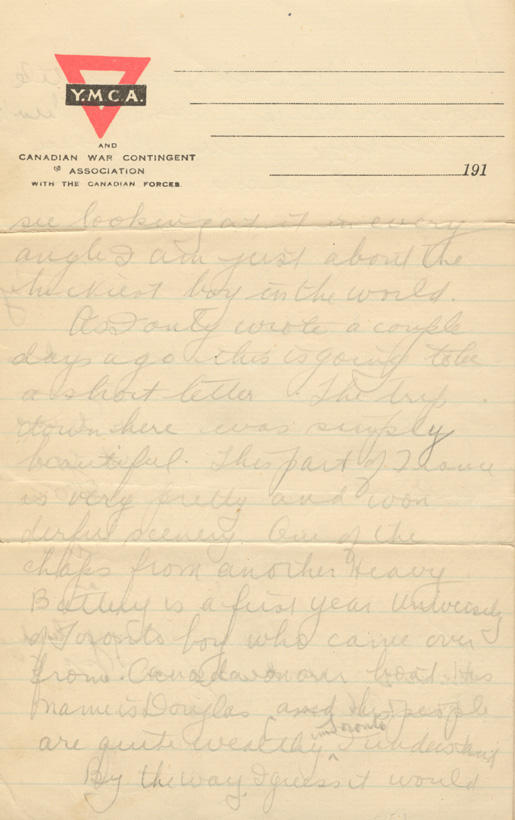 Y.M.C.A.
AND
CANADIAN WAR CONTINGENT
ASSOCIATION
WITH THE CANADIAN FORCES.
191
see looking at it in every
angle I am just about the
luckiest boy in the world.
As I only wrote a couple
days ago this is going to be
a short letter. The trip
down here was simply
beautiful. This part of France
is very pretty and won
derful scenery. One of the
chaps from another Heavy
Battery is a first year University
of Toronto boy who came over
from Canada on our boat. His
name is Douglas and his people
are quite wealthy in Toronto I understand
By the way I guess it would